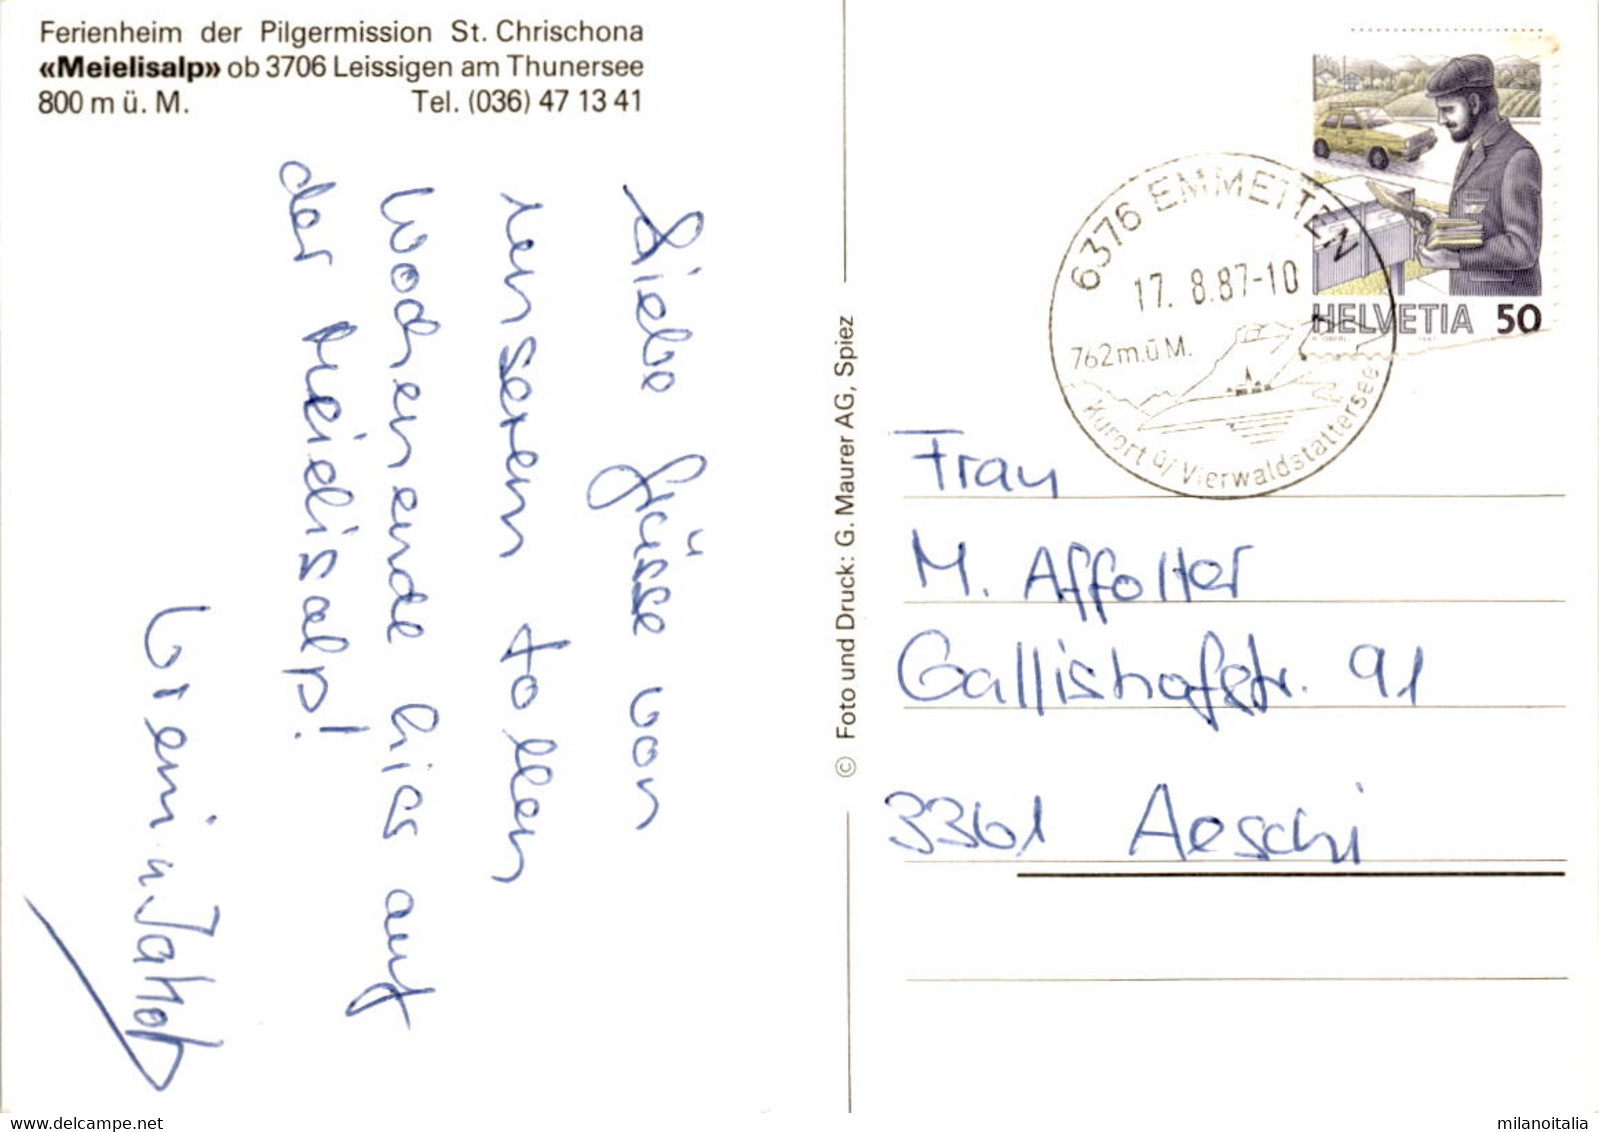 Ferienheim der Pilgermission St. Chrischona
«Meielisalp» ob 3706 Leissigen am Thunersee
800 m ü. M. Tel. (036) 47 13 41
Liebe Grüsse von
unserem tollen
Wochenende hier auf
der Meielisalp!
Vreni u. Jakob
© Foto und Druck: G. Maurer AG, Spiez
6376 EMMETTEN
17. 8.87-10
762m.ü M.
Kurort ü/Vierwaldstättersee
HELVETIA 50
1987
Frau
M. Affolter
Gallishofstr. 91
3361 Aeschi
milanoitalia